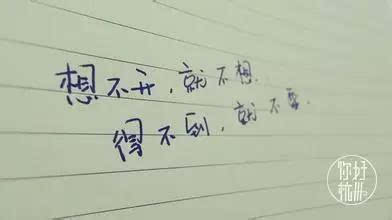 想不开,就不想.
得不到,就不要.
你好
杭州